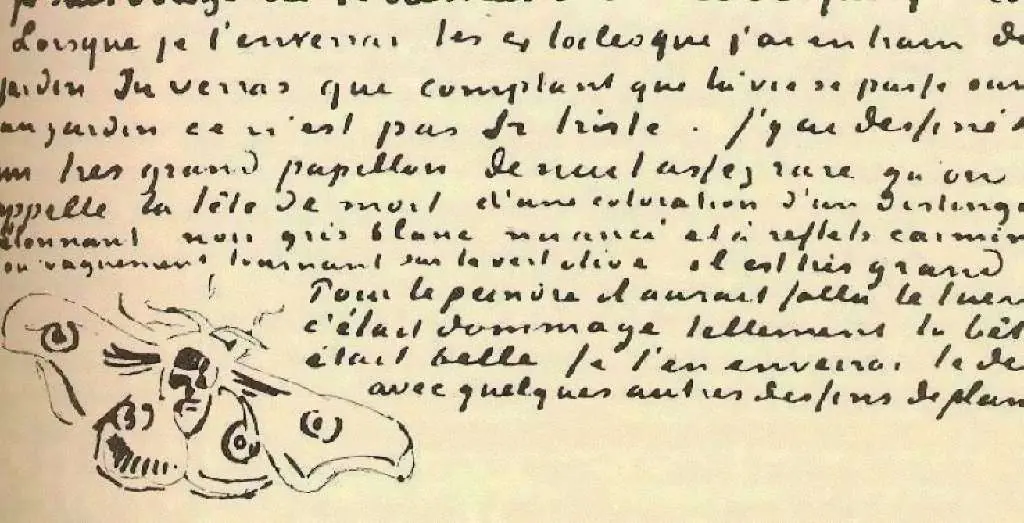 Lorsque je t'enverrai les 4 toiles que j'ai en train de
jardin Tu verras que comptant que la vie se passe sur
au jardin ce n'est pas si triste. J'y ai dessiné
un tres grand papillon de nuit assez rare qu'on
appelle la tête de mort d'une coloration d'un distingué
étonnant noir gris blanc nuancé et à reflets carmin
ou vaguement tournant sur le vert olive il est très grand
Pour le peindre il aurait fallu le tuer
c'était dommage tellement la bête
était belle Je t'en enverrai le des
avec quelques autres dessins de plan